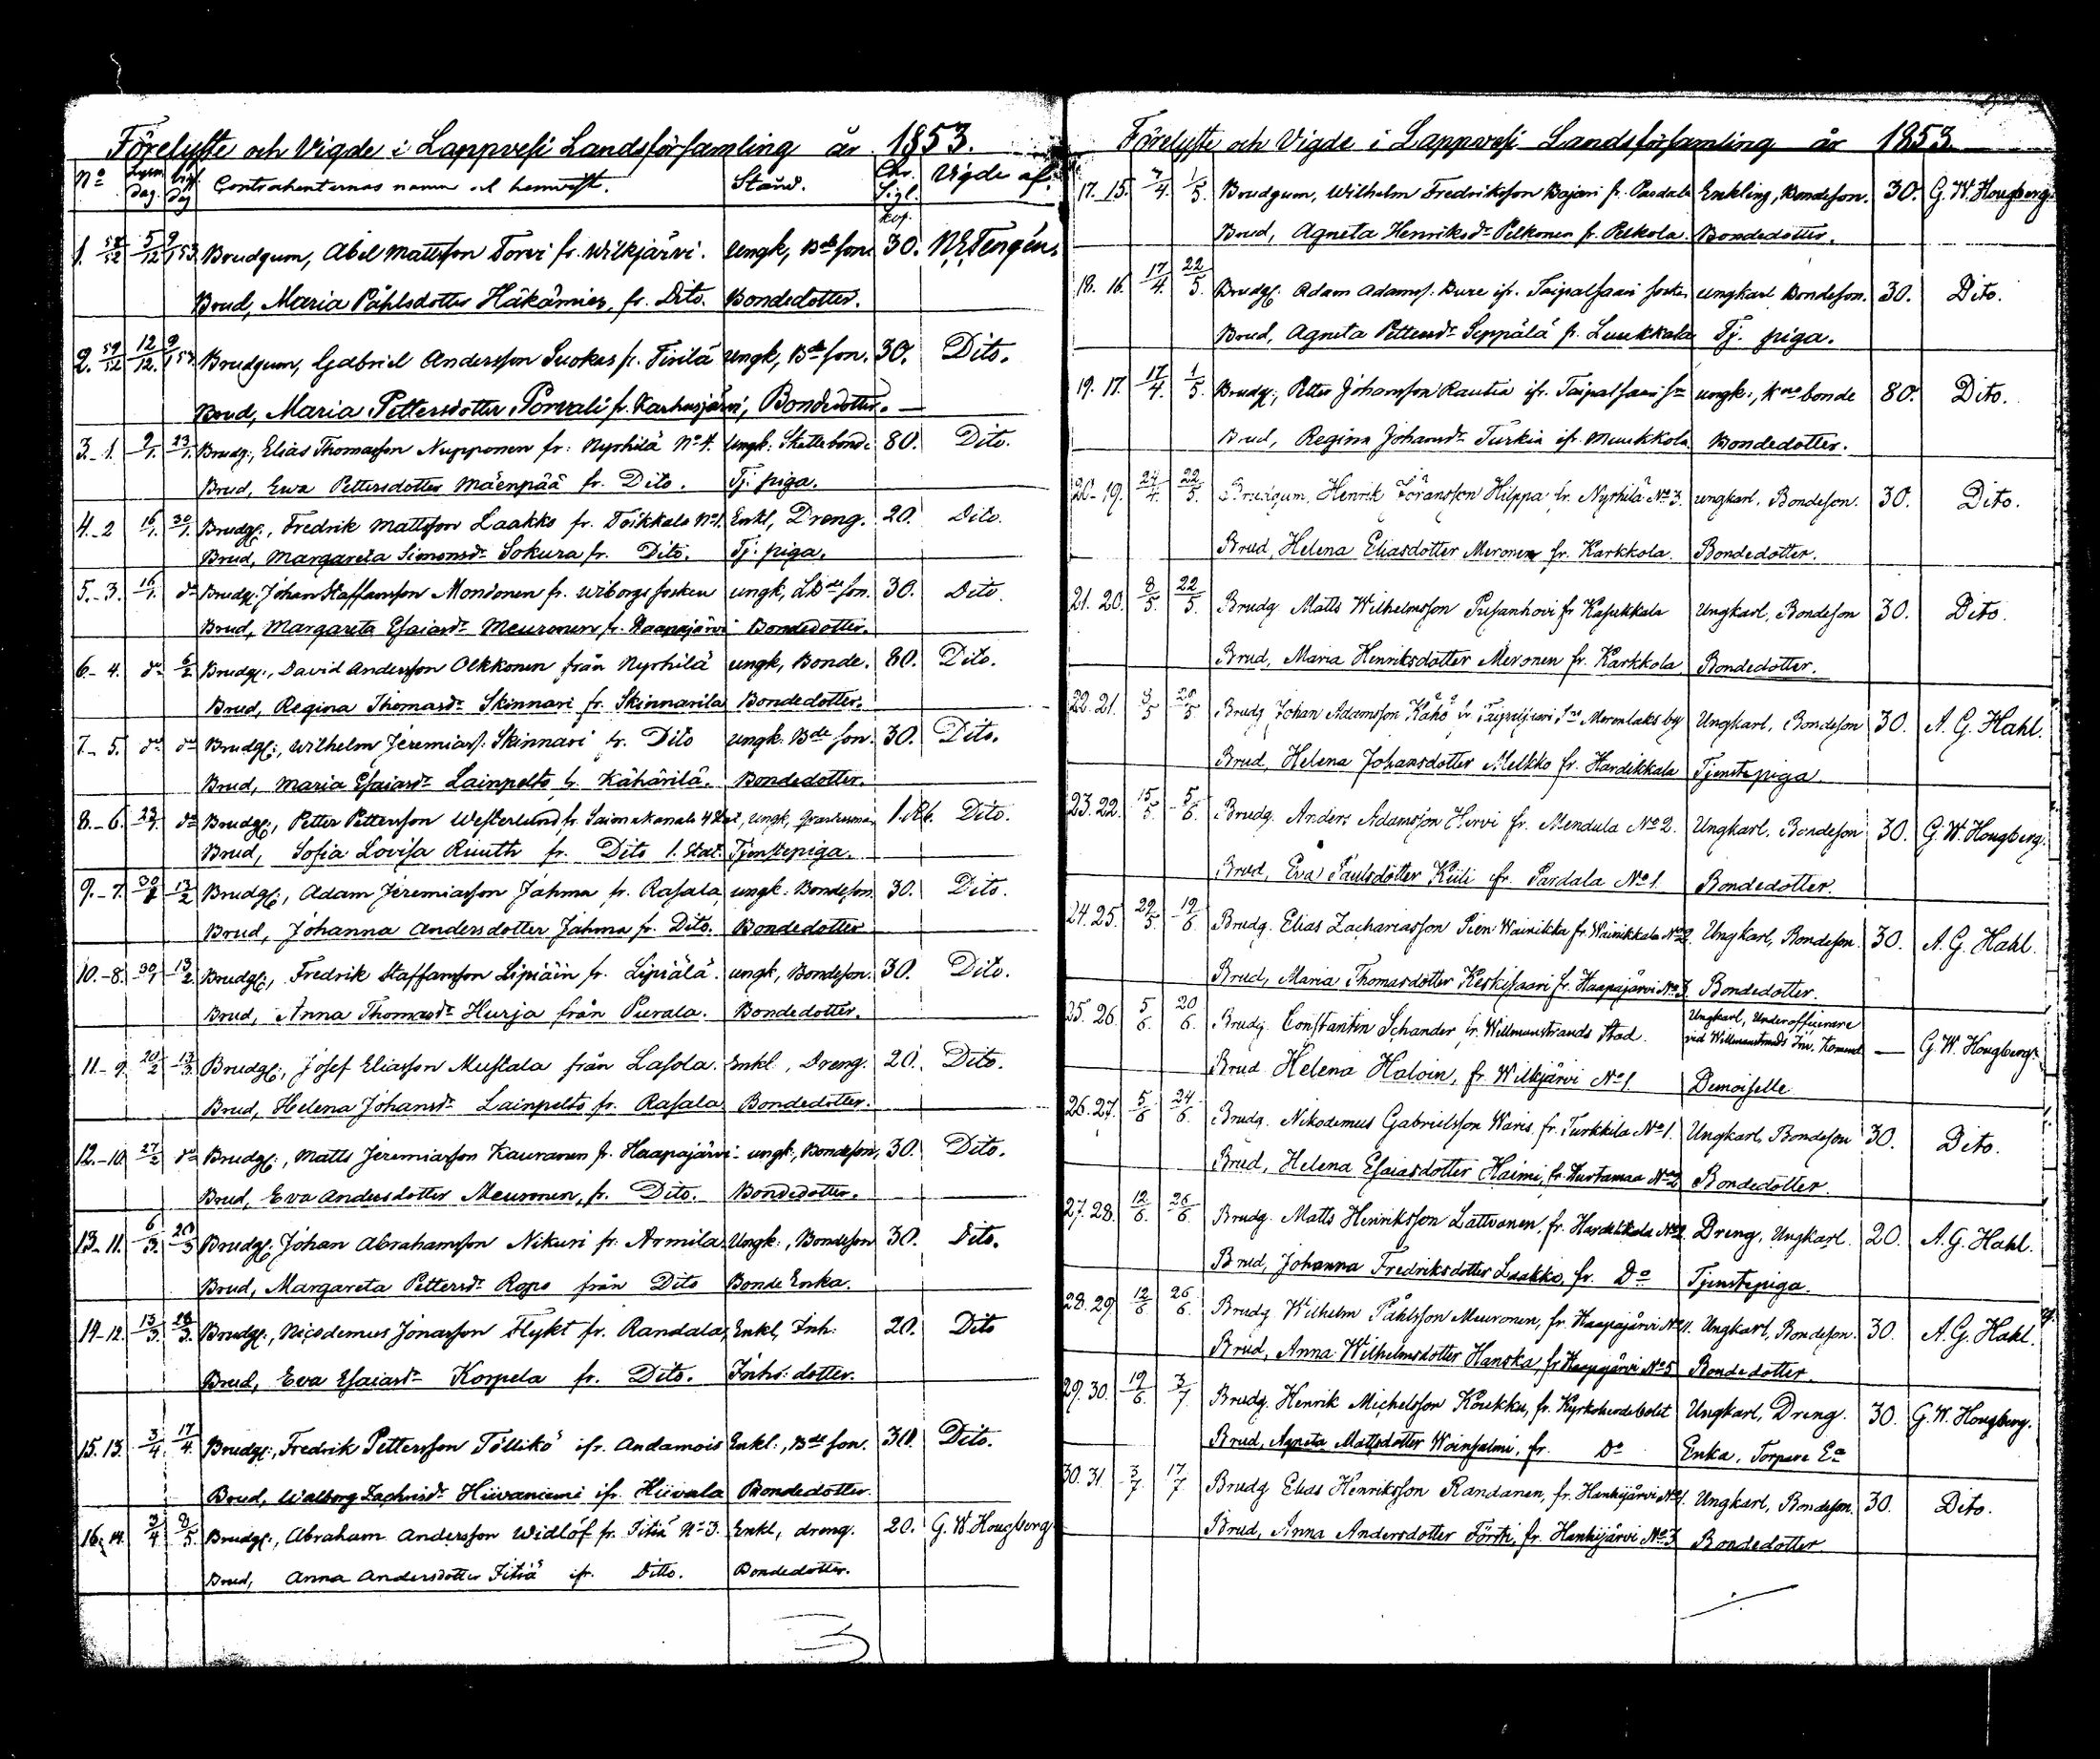 Förelyste och Vigde i Lappvesi Landsförsamling år 1853.
No Lysn. Dag. Vigs. Dag Contrahenternas namn och hemvist. Stånd. Chr. Sigl. kop. Vigde af.
1. 5/12 9/1 53. Brudgum, Abel Mattsson Torvi fr. Wilkjärvi. Ungk, Bde son. 30. N.E. Tengén.
Brud, Maria Påhlsdotter Häkämies, fr. Dito. Bondedotter.
2. 12/12. 9/1 53. Brudgum, Gabriel Andersson Suokas fr. Tirilä Ungk, Bde son. 30. Dito.
Brud, Maria Pettersdotter Porvali fr. Karhusjärvi, Bondedotter.
3.-1. 2/1. 23/1. Brudg:, Elias Thomasson Nupponen fr: Nyrhilä No 4. Ungk. Skattebonde 80. Dito.
Brud, Ewa Pettersdotter Mäenpää fr. Dito. Tj. piga.
4.-2 16/1. 30/1. Brudg:, Fredrik Mattsson Laakko fr. Toikkala No 1. Enkl, Dreng. 20. Dito.
Brud, Margareta Simonsdr Sokura fr. Dito. Tj. piga.
5.-3. 16/1. do Brudg. Johan Staffansson Mononen fr. Wiborgs socken ungk, LBde son. 30. Dito
Brud, Margareta Esaiasdr Meuronen fr. Haapajärvi Bondedotter.
6.-4. do 6/2. Brudg:, David Andersson Olkkonen från Nyrhilä ungk, Bonde. 80. Dito.
Brud, Regina Thomasdr Skinnari fr. Skinnarila Bondedotter.
7.-5. do do Brudg:, Wilhelm Jeremiass. Skinnari fr. Dito ungk. Bde son. 30. Dito.
Brud, Maria Esaiasdr Lainpelto fr. Kähärilä. Bondedotter.
8.-6. 23/1. do Brudg:, Petter Pettersson Westerlund fr. Saima kanals 4 Stat, ungk, 1. Rb. Dito.
Brud, Sofia Lovisa Ruuth fr. Dito 1. Stat. Tjenstepiga.
9.-7. 30/1 13/2 Brudg:, Adam Jeremiasson Jähma fr. Rasala, ungk. Bondeson. 30. Dito.
Brud, Johanna Andersdotter Jähma fr. Dito. Bondedotter
10.-8. 30/1 13/2. Brudg:, Fredrik Staffansson Lipiäin fr. Lipiälä. ungk, Bondeson. 30. Dito.
Brud, Anna Thomasdr Hurja från Purala. Bondedotter.
11.-9. 20/2 13/3. Brudg:, Josef Eliasson Mustala från Lasola. Enkl, Dreng. 20. Dito.
Brud, Helena Johansdr Lainpelto fr. Rasala Bondedotter.
12.-10. 27/2 do Brudg:, Matts Jeremiasson Kauranen fr. Haapajärvi ungk, Bondeson, 30. Dito.
Brud, Eva Andersdotter Meuronen, fr. Dito. Bondedotter.
13.-11. 6/3. 20/3 Brudg: Johan Abrahamsson Nikuri fr. Armila Ungk:, Bondeson 30. Dito.
Brud, Margareta Pettersdr Ropo från Dito Bonde Enka.
14.-12. 13/3. 28/3. Brudg:, Nicodemus Jonasson Flykt fr. Randala, Enkl, Inh: 20. Dito
Brud, Eva Esaiasdr Korpela fr. Dito. Inhs: dotter.
15.13. 3/4. 17/4. Brudg:, Fredrik Pettersson Töllikö ifr. Andamois Enkl:, Bde son. 30. Dito.
Brud, Walborg Zachrisdr Hiivaniemi ifr. Hiivala Bondedotter.
16.14. 3/4 8/5. Brudg:, Abraham Andersson Widlöf fr. Titiä No 3. Enkl, dreng. 20. G.W. Hougberg.
Brud, Anna Andersdotter Titiä ifr. Ditto. Bondedotter.
Förelyste och Vigde i Lappvesi Landsförsamling år 1853.
17.15. /4. 1/5. Brudgum, Wilhelm Fredriksson Bajari fr. Pardala Enkling, Bondeson. 30. G.W. Hougberg.
Brud, Agneta Henriksdr Pelkonen fr. Pelkola. Bondedotter.
18. 16. 17/4. 22/5. Brudg:. Adam Adamss. Bure ifr. Taipalsaari socken ungkarl Bondeson. 30. Dito.
Brud, Agneta Pettersdr Seppälä fr. Luukkala Tj. piga.
19. 17. 17/4. 1/5. Brudg:, Petter Johansson Rautia ifr. Taipalsaari sn ungk., Kno bonde 80. Dito.
Brud, Regina Johansdr Turkia ifr. Muukkola Bondedotter.
20. 19. 24/4. 22/5. Brudgum, Henrik Göransson Hilppa fr. Nyrhilä No 3. ungkarl. Bondeson. 30. Dito.
Brud, Helena Eliasdotter Meronen fr. Karkkola. Bondedotter.
21. 20. 8/5. 22/5. Brudg Matts Wilhelmsson Pusanhovi fr Kasukkala Ungkarl, Bondeson 30. Dito.
Brud, Maria Henriksdotter Meronen fr. Karkkola, Bondedotter.
22. 21. 8/5 29/5 Brudg Johan Adamsson Kähö fr. Taipalsaari Sn Merenlaks by Ungkarl, Bondeson 30. A.G. Hahl.
Brud, Helena Johansdotter Melkko fr. Hardikkala Tjenstepiga.
23. 22. 15/5. 5/6. Brudg. Anders Adamsson Hervi fr. Mendula No 2. Ungkarl, Bondeson 30. G.W. Hougberg.
Brud, Eva Paulsdotter Kiili fr. Pardala No 1. Bondedotter.
24. 25. 29/5. 19/6. Brudg. Elias Zachariasson Pien Wainikka fr. Wainikkala No 2. Ungkarl, Bondeson. 30. A.G. Hahl.
Brud, Maria Thomasdotter Keskisaari fr. Haapajärvi No 3. Bondedotter.
25. 26. 5/6. 20/6. Brudg. Constantin Schander fr. Willmanstrands stad. Ungkarl, Underofficerare vid Willmanstrands Inv. Komend. — G.W. Hougberg.
Brud Helena Haloin, fr. Wilkjärvi No 1 Demoiselle
26. 27. 5/6 24/6. Brudg. Nikodemus Gabrielsson Waris. fr. Turkkila No 1. Ungkarl, Bondeson 30. Dito.
Brud, Helena Esaiasdotter Haimi, fr. Hurtamaa No 2 Bondedotter.
27. 28. 12/6. 26/6. Brudg. Matts Henriksson Lattvanen, fr. Hardikkala No 2. Dreng, Ungkarl. 20. A.G. Hahl.
Brud, Johanna Fredriksdotter Laakko, fr. Do Tjenstepiga.
28. 29. 12/6 26/6. Brudg Wilhelm Påhlsson Meuronen, fr. Haapajärvi No 11. Ungkarl, Bondeson. 30. A.G. Hahl.
Brud, Anna Wilhelmsdotter Hanska, fr Haapajärvi No 5 Bondedotter.
29. 30. 19/6. 3/7. Brudg. Henrik Michelsson Koukku, fr. Kyrkoherdebolet Ungkarl, Dreng. 30. G.W. Hougberg.
Brud, Agneta Mattsdotter Woinsalmi, fr. Do Enka, Torpare Ea
30. 31. 3/7. 17/7 Brudg Elias Henriksson Randanen, fr. Hanhijärvi No 1. Ungkarl, Bondeson. 30. Dito.
Brud, Anna Andersdotter Förtti, fr. Hanhijärvi No 3 Bondedotter.